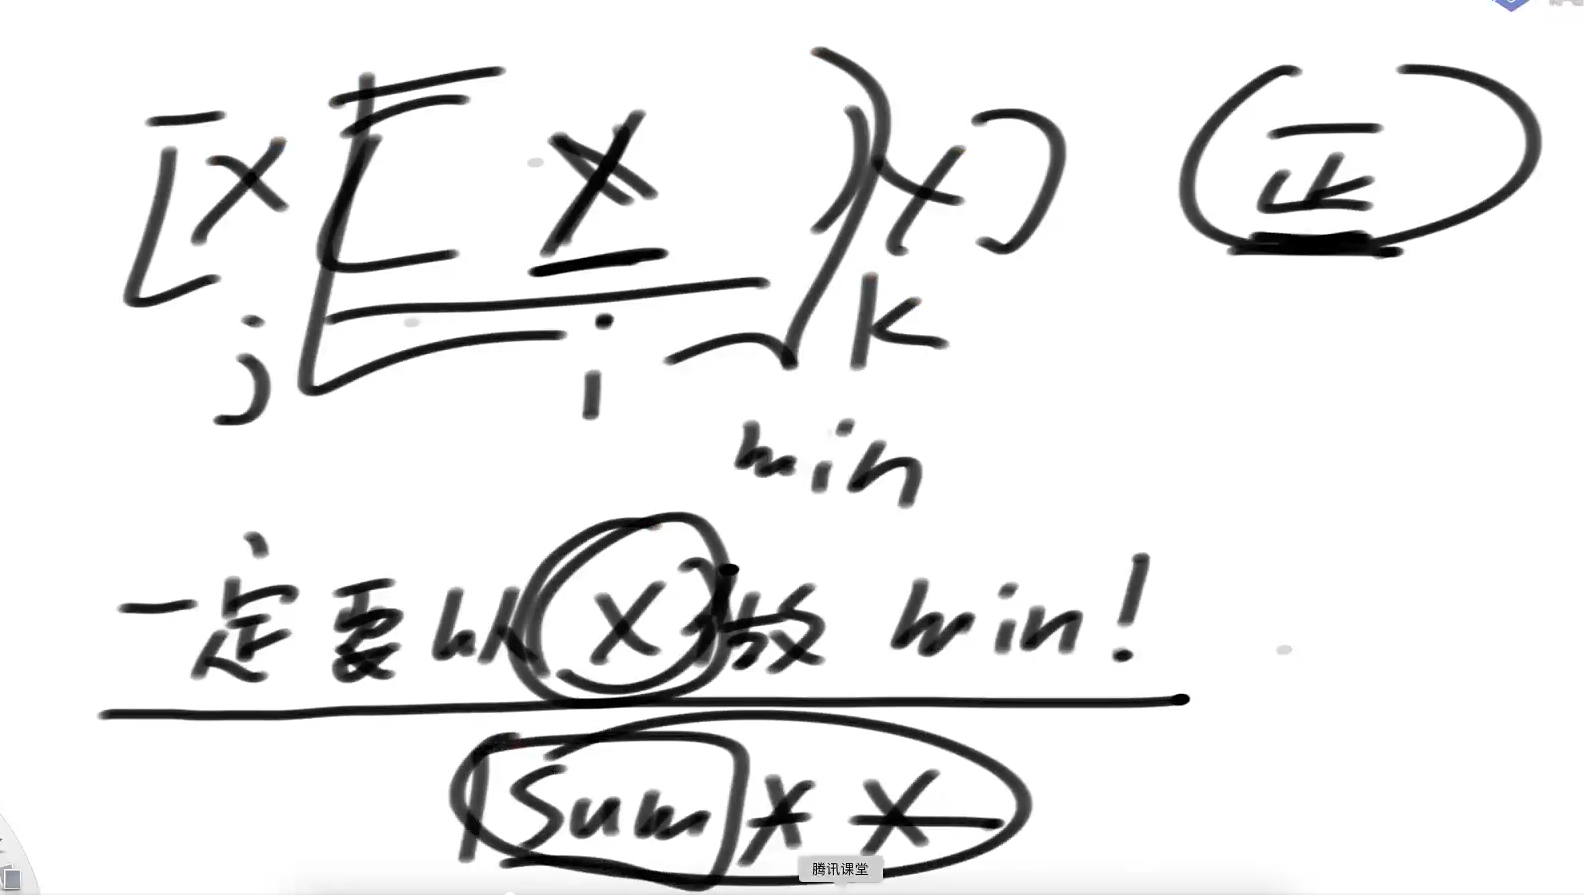 [X [ X ] X] 正
j i k
min
一定要以X做min!
Sum * X
腾讯课堂